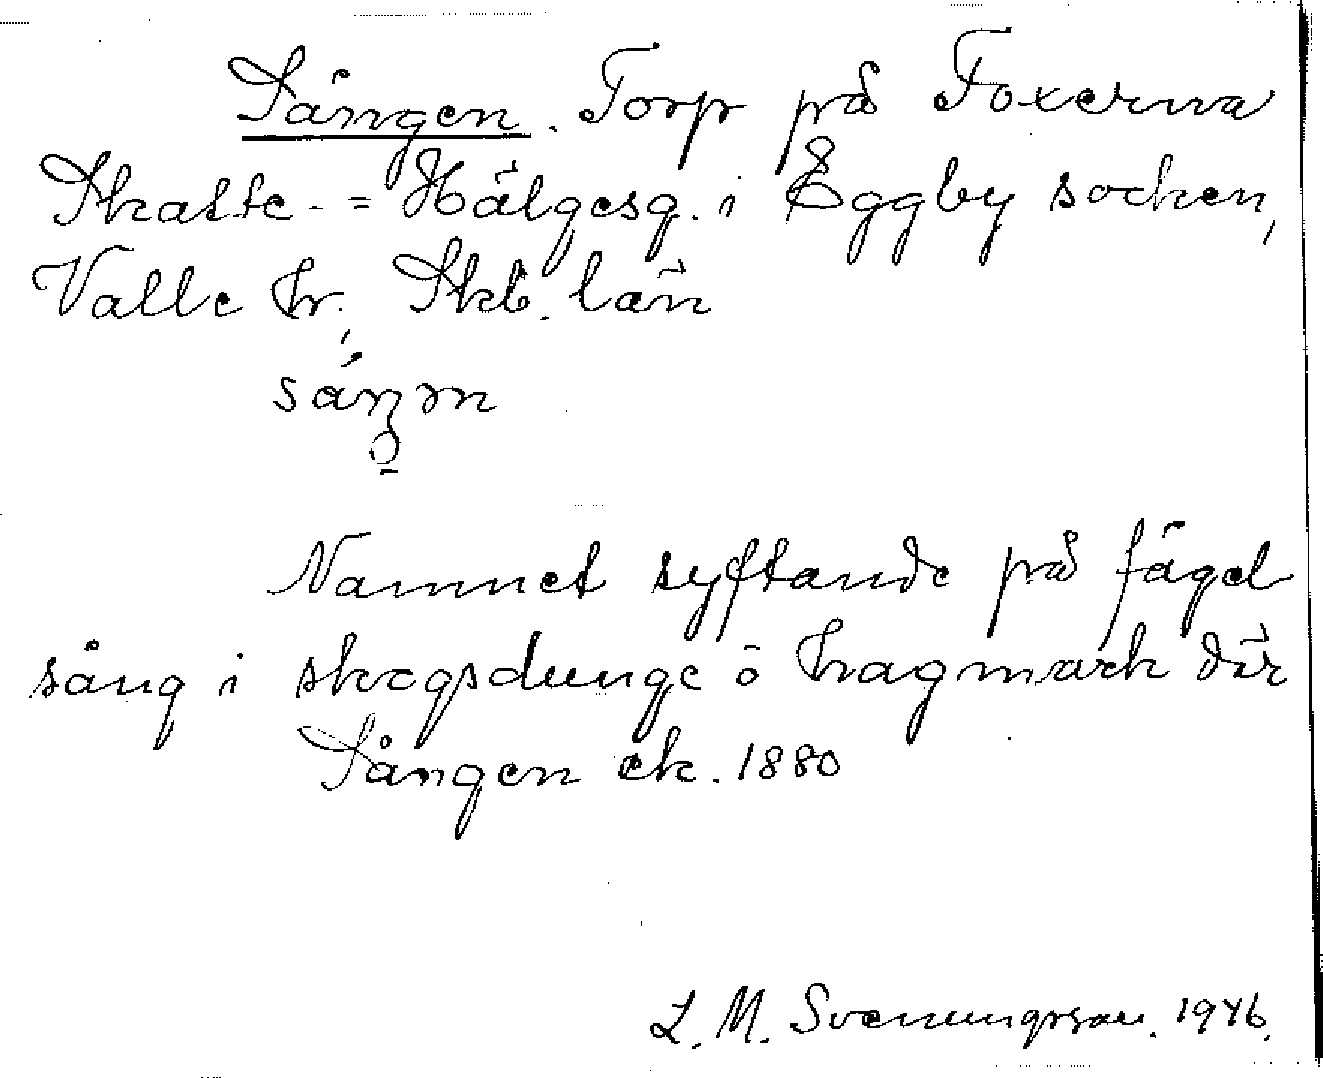 Sången. Torp på Foxerna
Skatte- = Hälgesg. i Eggby socken,
Valle hr. Skb. län
Namnet syftande på fågel
sång i skogsdunge o hagmark där
Sången ek. 1880
L. M. Svenungsson. 1946.